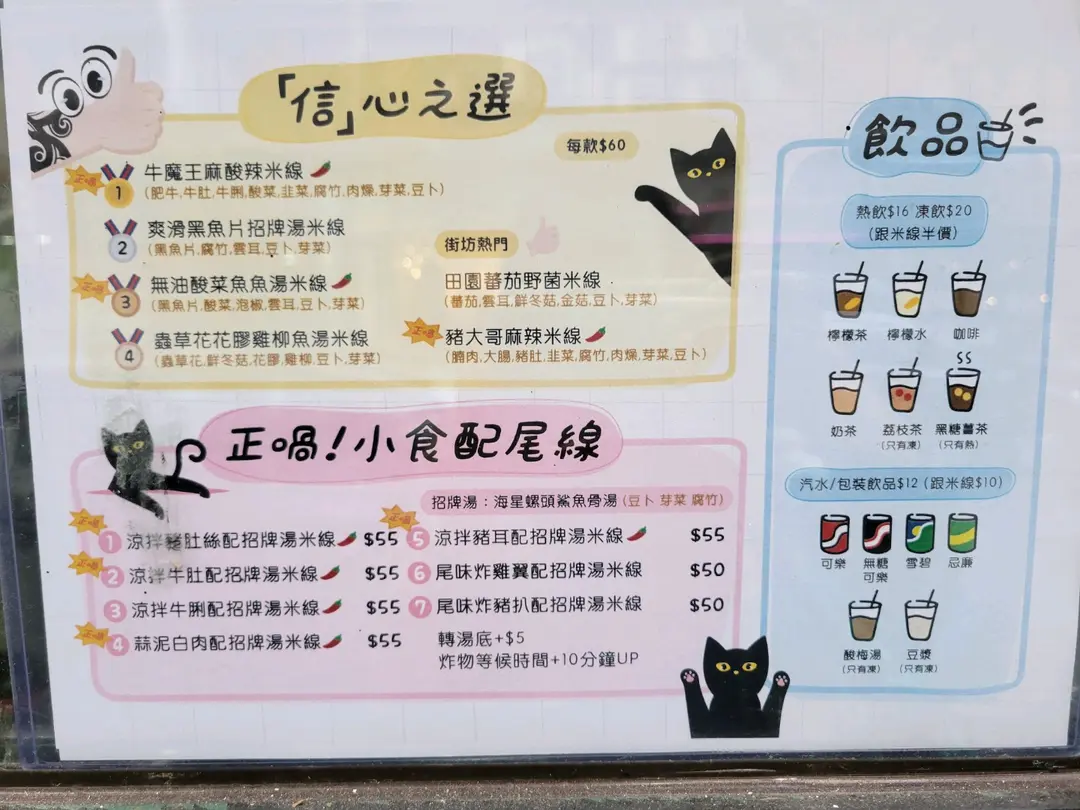 「信」心之選
每款$60
正喎
1 牛魔王麻酸辣米線
(肥牛,牛肚,牛脷,酸菜,韭菜,腐竹,肉燥,芽菜,豆卜)
2 爽滑黑魚片招牌湯米線
(黑魚片,腐竹,雲耳,豆卜,芽菜)
正喎
3 無油酸菜魚魚湯米線
(黑魚片,酸菜,泡椒,雲耳,豆卜,芽菜)
4 蟲草花花膠雞柳魚湯米線
(蟲草花,鮮冬菇,花膠,雞柳,豆卜,芽菜)
街坊熱門
田園蕃茄野菌米線
(蕃茄,雲耳,鮮冬菇,金菇,豆卜,芽菜)
正喎
豬大哥麻辣米線
(腩肉,大腸,豬肚,韭菜,腐竹,肉燥,芽菜,豆卜)
正喎!小食配尾線
招牌湯：海星螺頭鯊魚骨湯(豆卜 芽菜 腐竹)
正喎
1 涼拌豬肚絲配招牌湯米線 $55
正喎
2 涼拌牛肚配招牌湯米線 $55
3 涼拌牛脷配招牌湯米線 $55
正喎
4 蒜泥白肉配招牌湯米線 $55
正喎
5 涼拌豬耳配招牌湯米線 $55
6 尾味炸雞翼配招牌湯米線 $50
7 尾味炸豬扒配招牌湯米線 $50
轉湯底+$5
炸物等候時間+10分鐘UP
飲品
熱飲$16 凍飲$20
(跟米線半價)
檸檬茶 檸檬水 咖啡
奶茶 荔枝茶 黑糖薑茶
(只有凍) (只有熱)
汽水/包裝飲品$12 (跟米線$10)
可樂 無糖可樂 雪碧 忌廉
酸梅湯 豆漿
(只有凍) (只有凍)